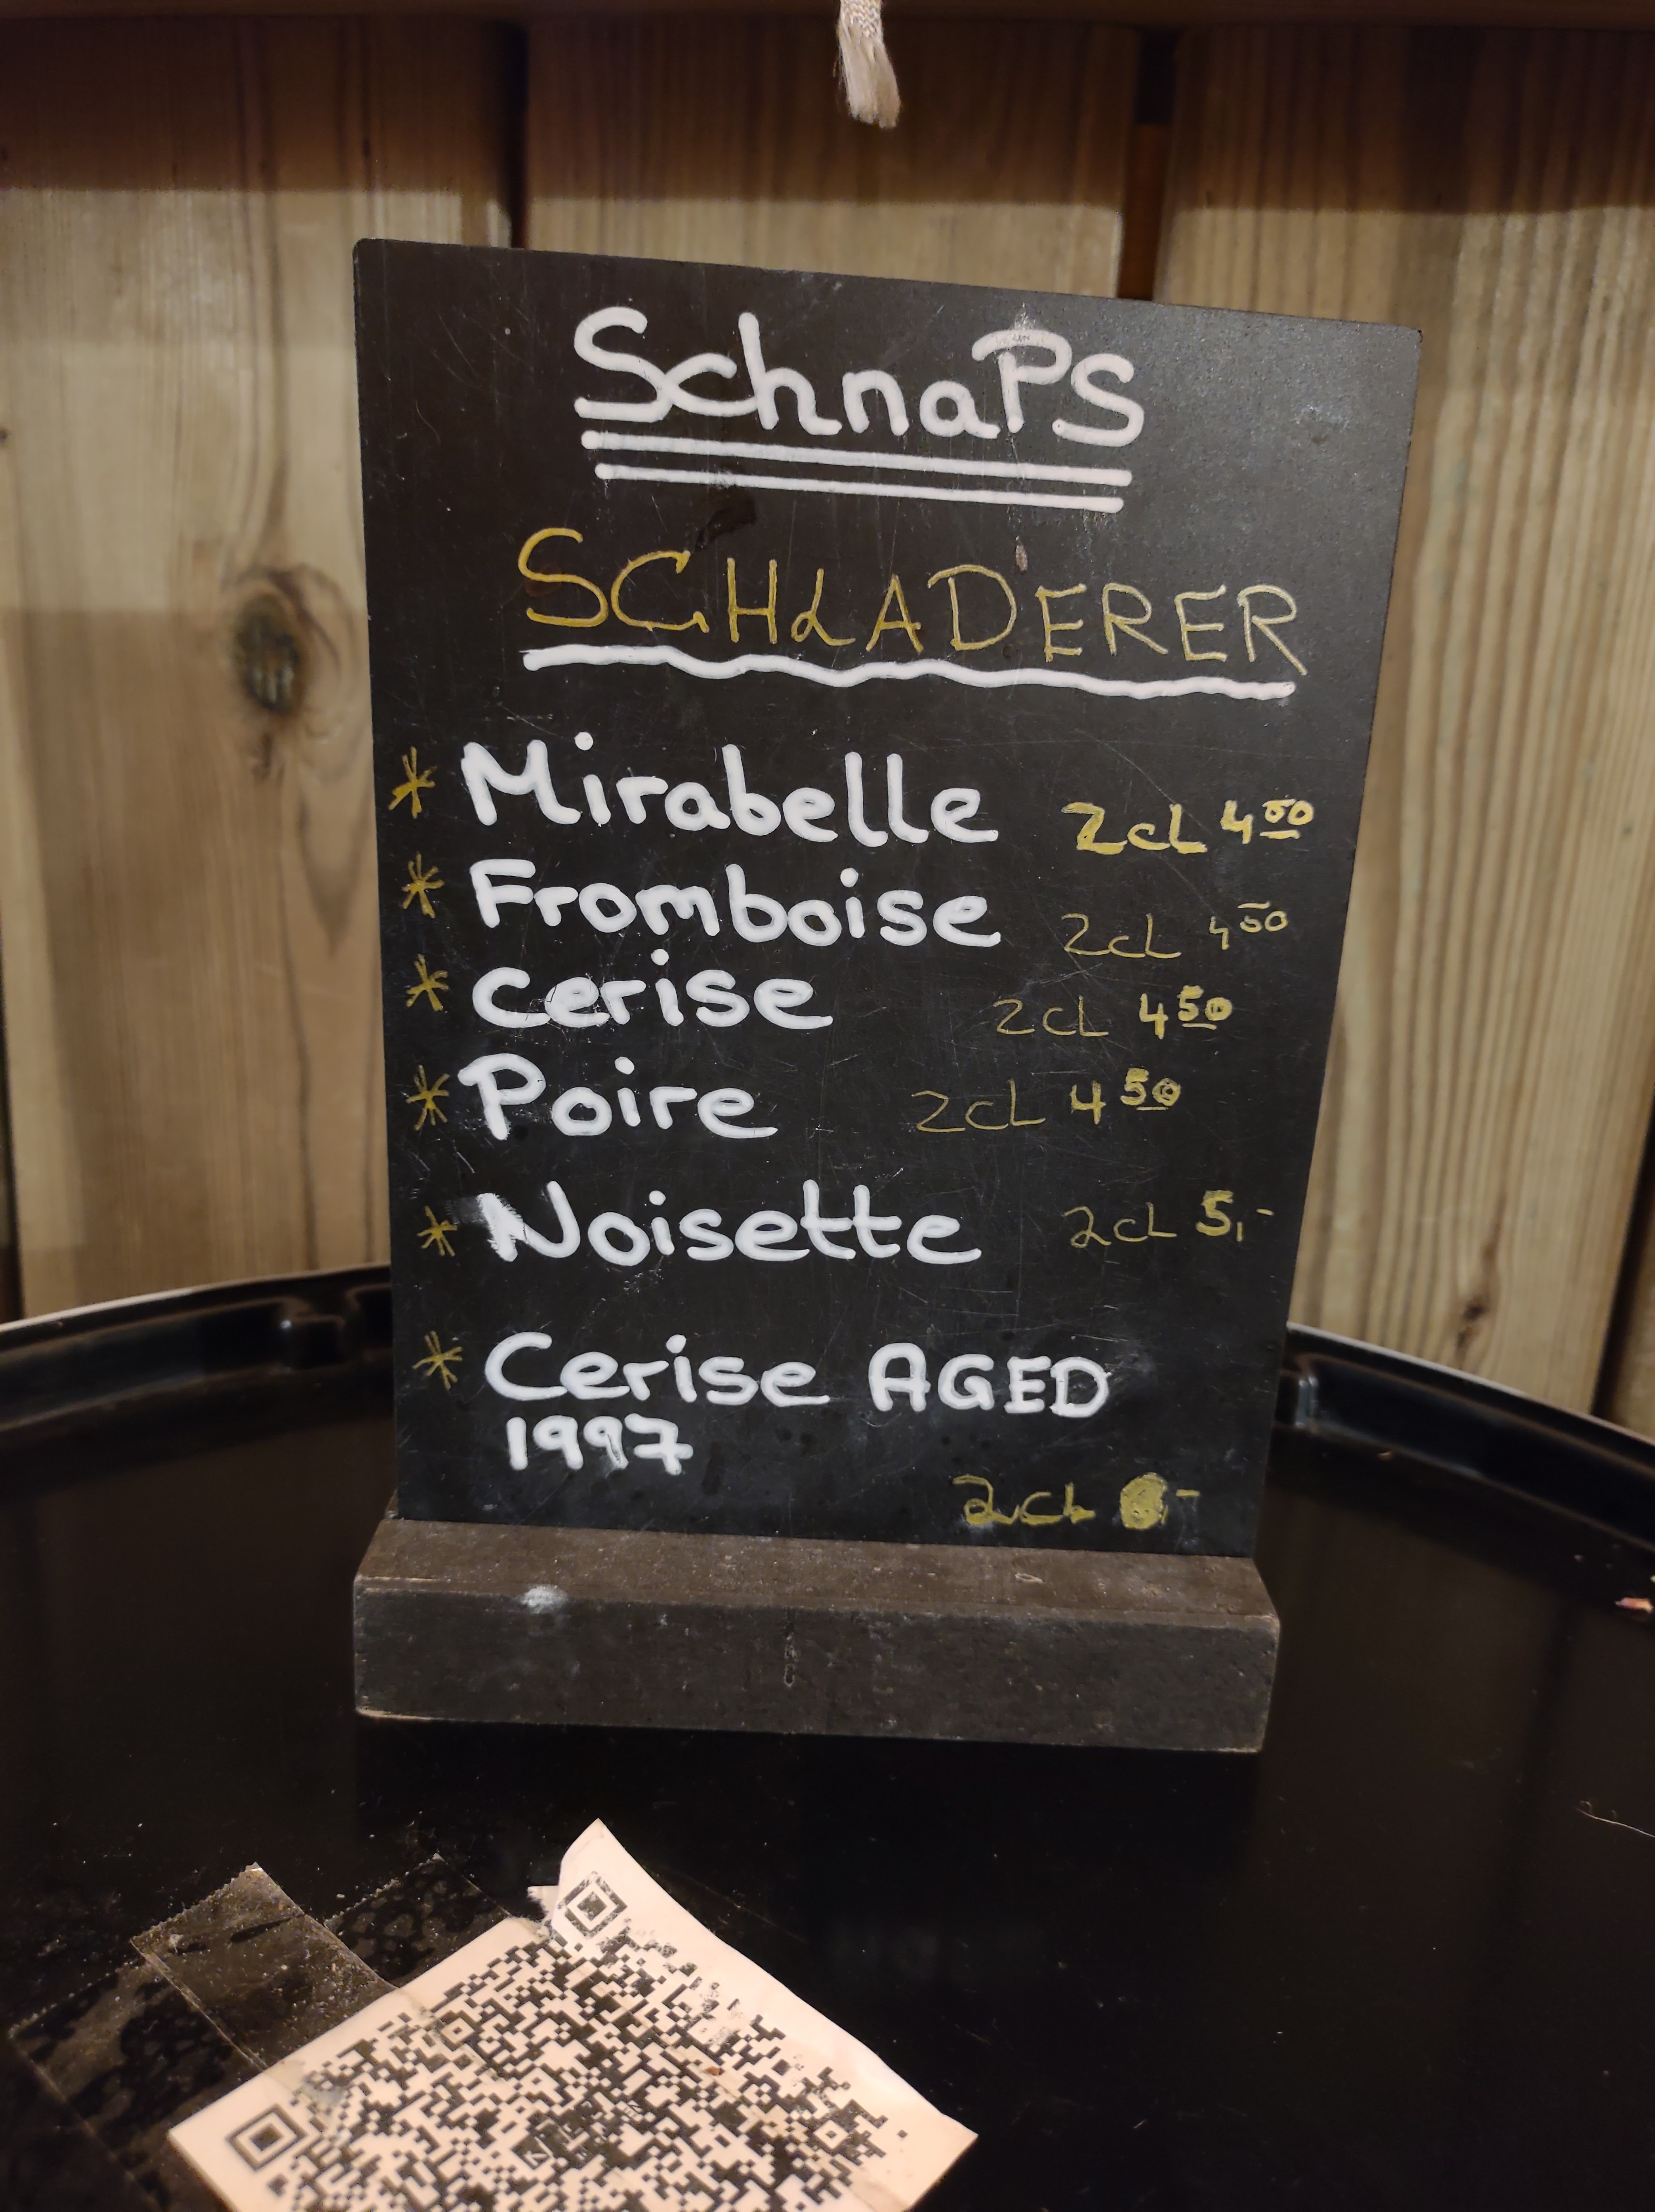 SchnaPS
SCHLADERER
* Mirabelle 2cL 4 50
* Fromboise 2cL 4 50
* cerise 2cL 4 50
* Poire 2cL 4 50
* Noisette 2cL 5,-
* Cerise AGED
1997
2cL